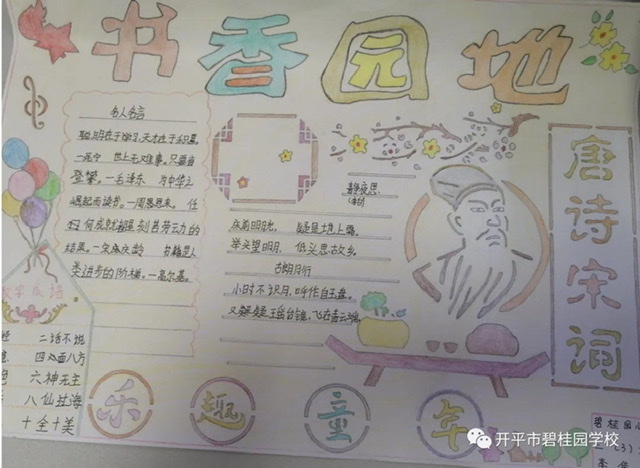 书香园地
名人名言
聪明在于学习,天才在于积累。
世上无难事,只要肯
登攀。—毛泽东 为中华之
崛起而读书。—周恩来 任
何成就都是刻苦劳动的
结果。—宋庆龄 书籍是人
类进步的阶梯。—高尔基。
静夜思
床前明月光, 疑是地上霜。
举头望明月, 低头思故乡。
古朗月行
小时不识月,呼作白玉盘。
又疑瑶台镜,飞在青云端。
唐诗宋词
数字成语
二话不说
四面八方
六神无主
八仙过海
十全十美
乐趣童年
碧桂园
(3)
开平市碧桂园学校